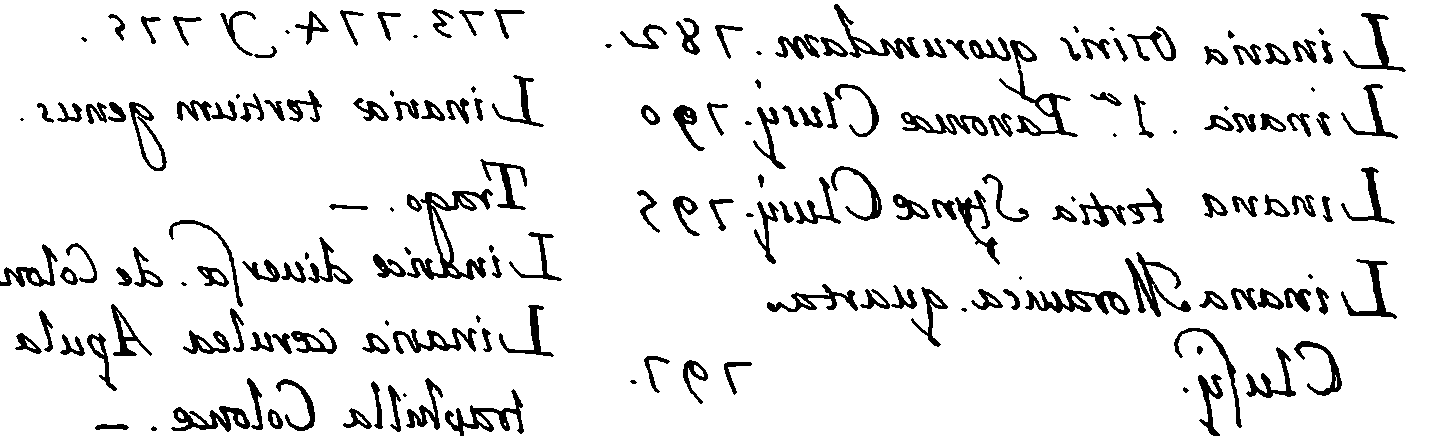 Linaria Osiris quorumdam. 782.
Linaria. 1.ª Panoniæ Clusij. 790
Linaria tertia Styriæ Clusij. 795
Linaria Morauica. quarta
Clusij. 797.
773. 774. y 775.
Linariæ tertium genus.
Trago. —
Linariæ diuersæ. de Colon
Linaria cærulea Apula
traphilla Colonæ. —